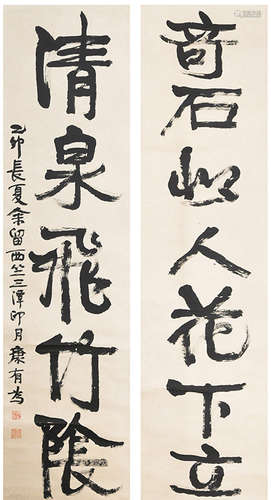 竒石似人花下立
清泉飛竹隂
乙卯長夏余留西三潭印月康有為